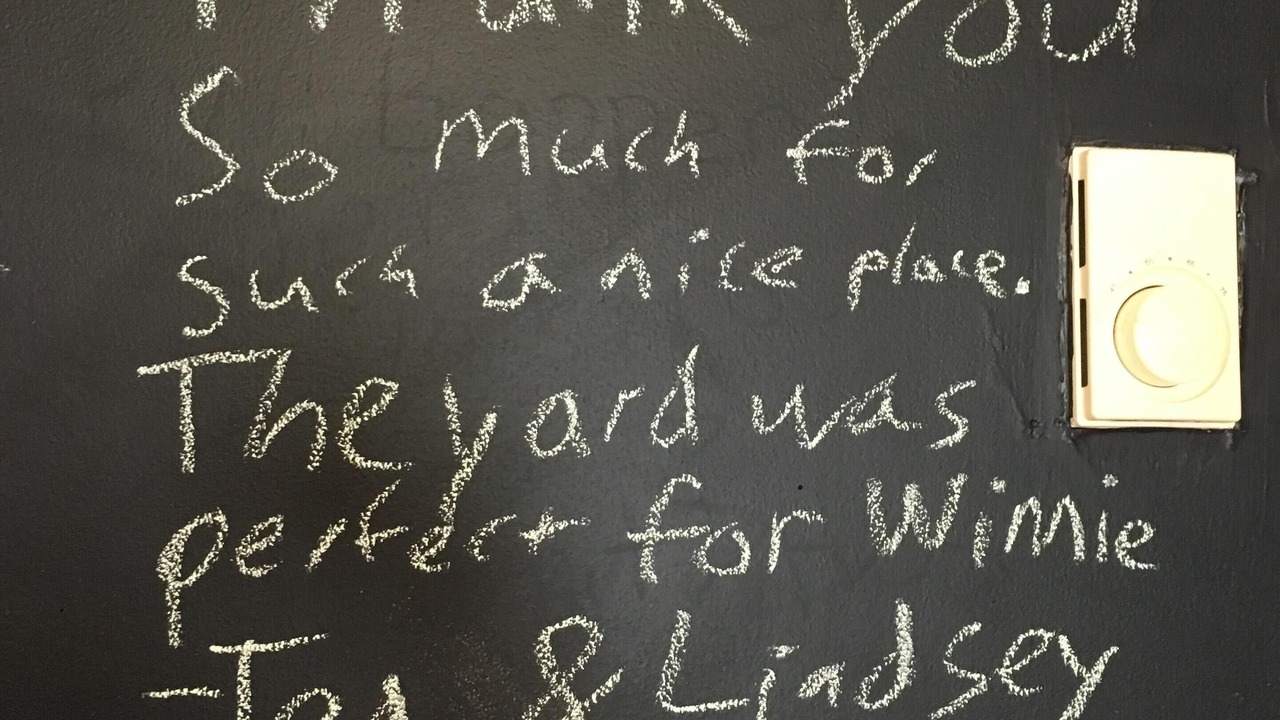 Thank you
So much for
such a nice place.
The yard was
perfect for Winnie
& Lindsey